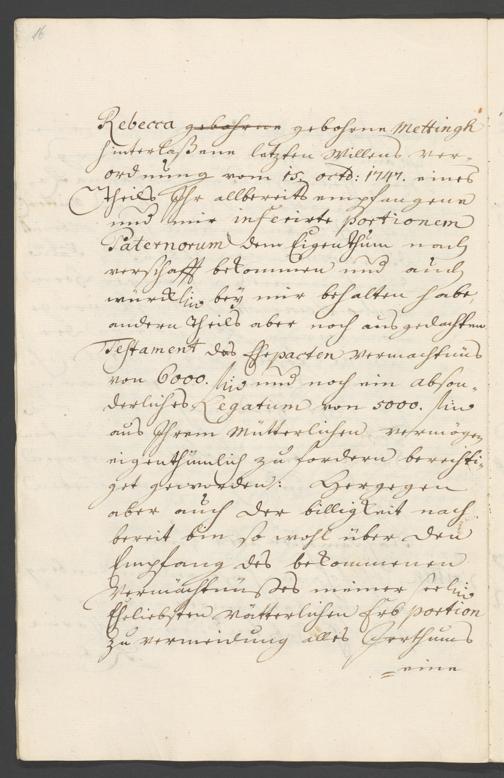 16
Rebecca gebohrne gebohrne Mettingh
hinterlaßene letzten Willens ver-
ordnung vom 15. octb: 1747. eines
Theils Ihr allbereits empfangene
und mir inferirte portionem
Paternorum dem Eigenthum nach
verschafft bekommen und auch
würckl: bey mir behalten habe,
andern Theils aber noch aus gedachten
Testament des Ehepacten vermächtnüs
von 6000. und noch ein abson-
derliches Legatum von 5000.
aus Ihrem Mütterlichen vermögen
eigenthümlich zu fordern berechti-
get geworden: Hergegen
aber auch der billigkeit nach
bereit bin so wohl über den
Empfang des bekommenen
Vermächtnüßes meiner seel:
Eheliebsten vätterlichen Erb portion
zu vermeidung alles Irrthums
= eine